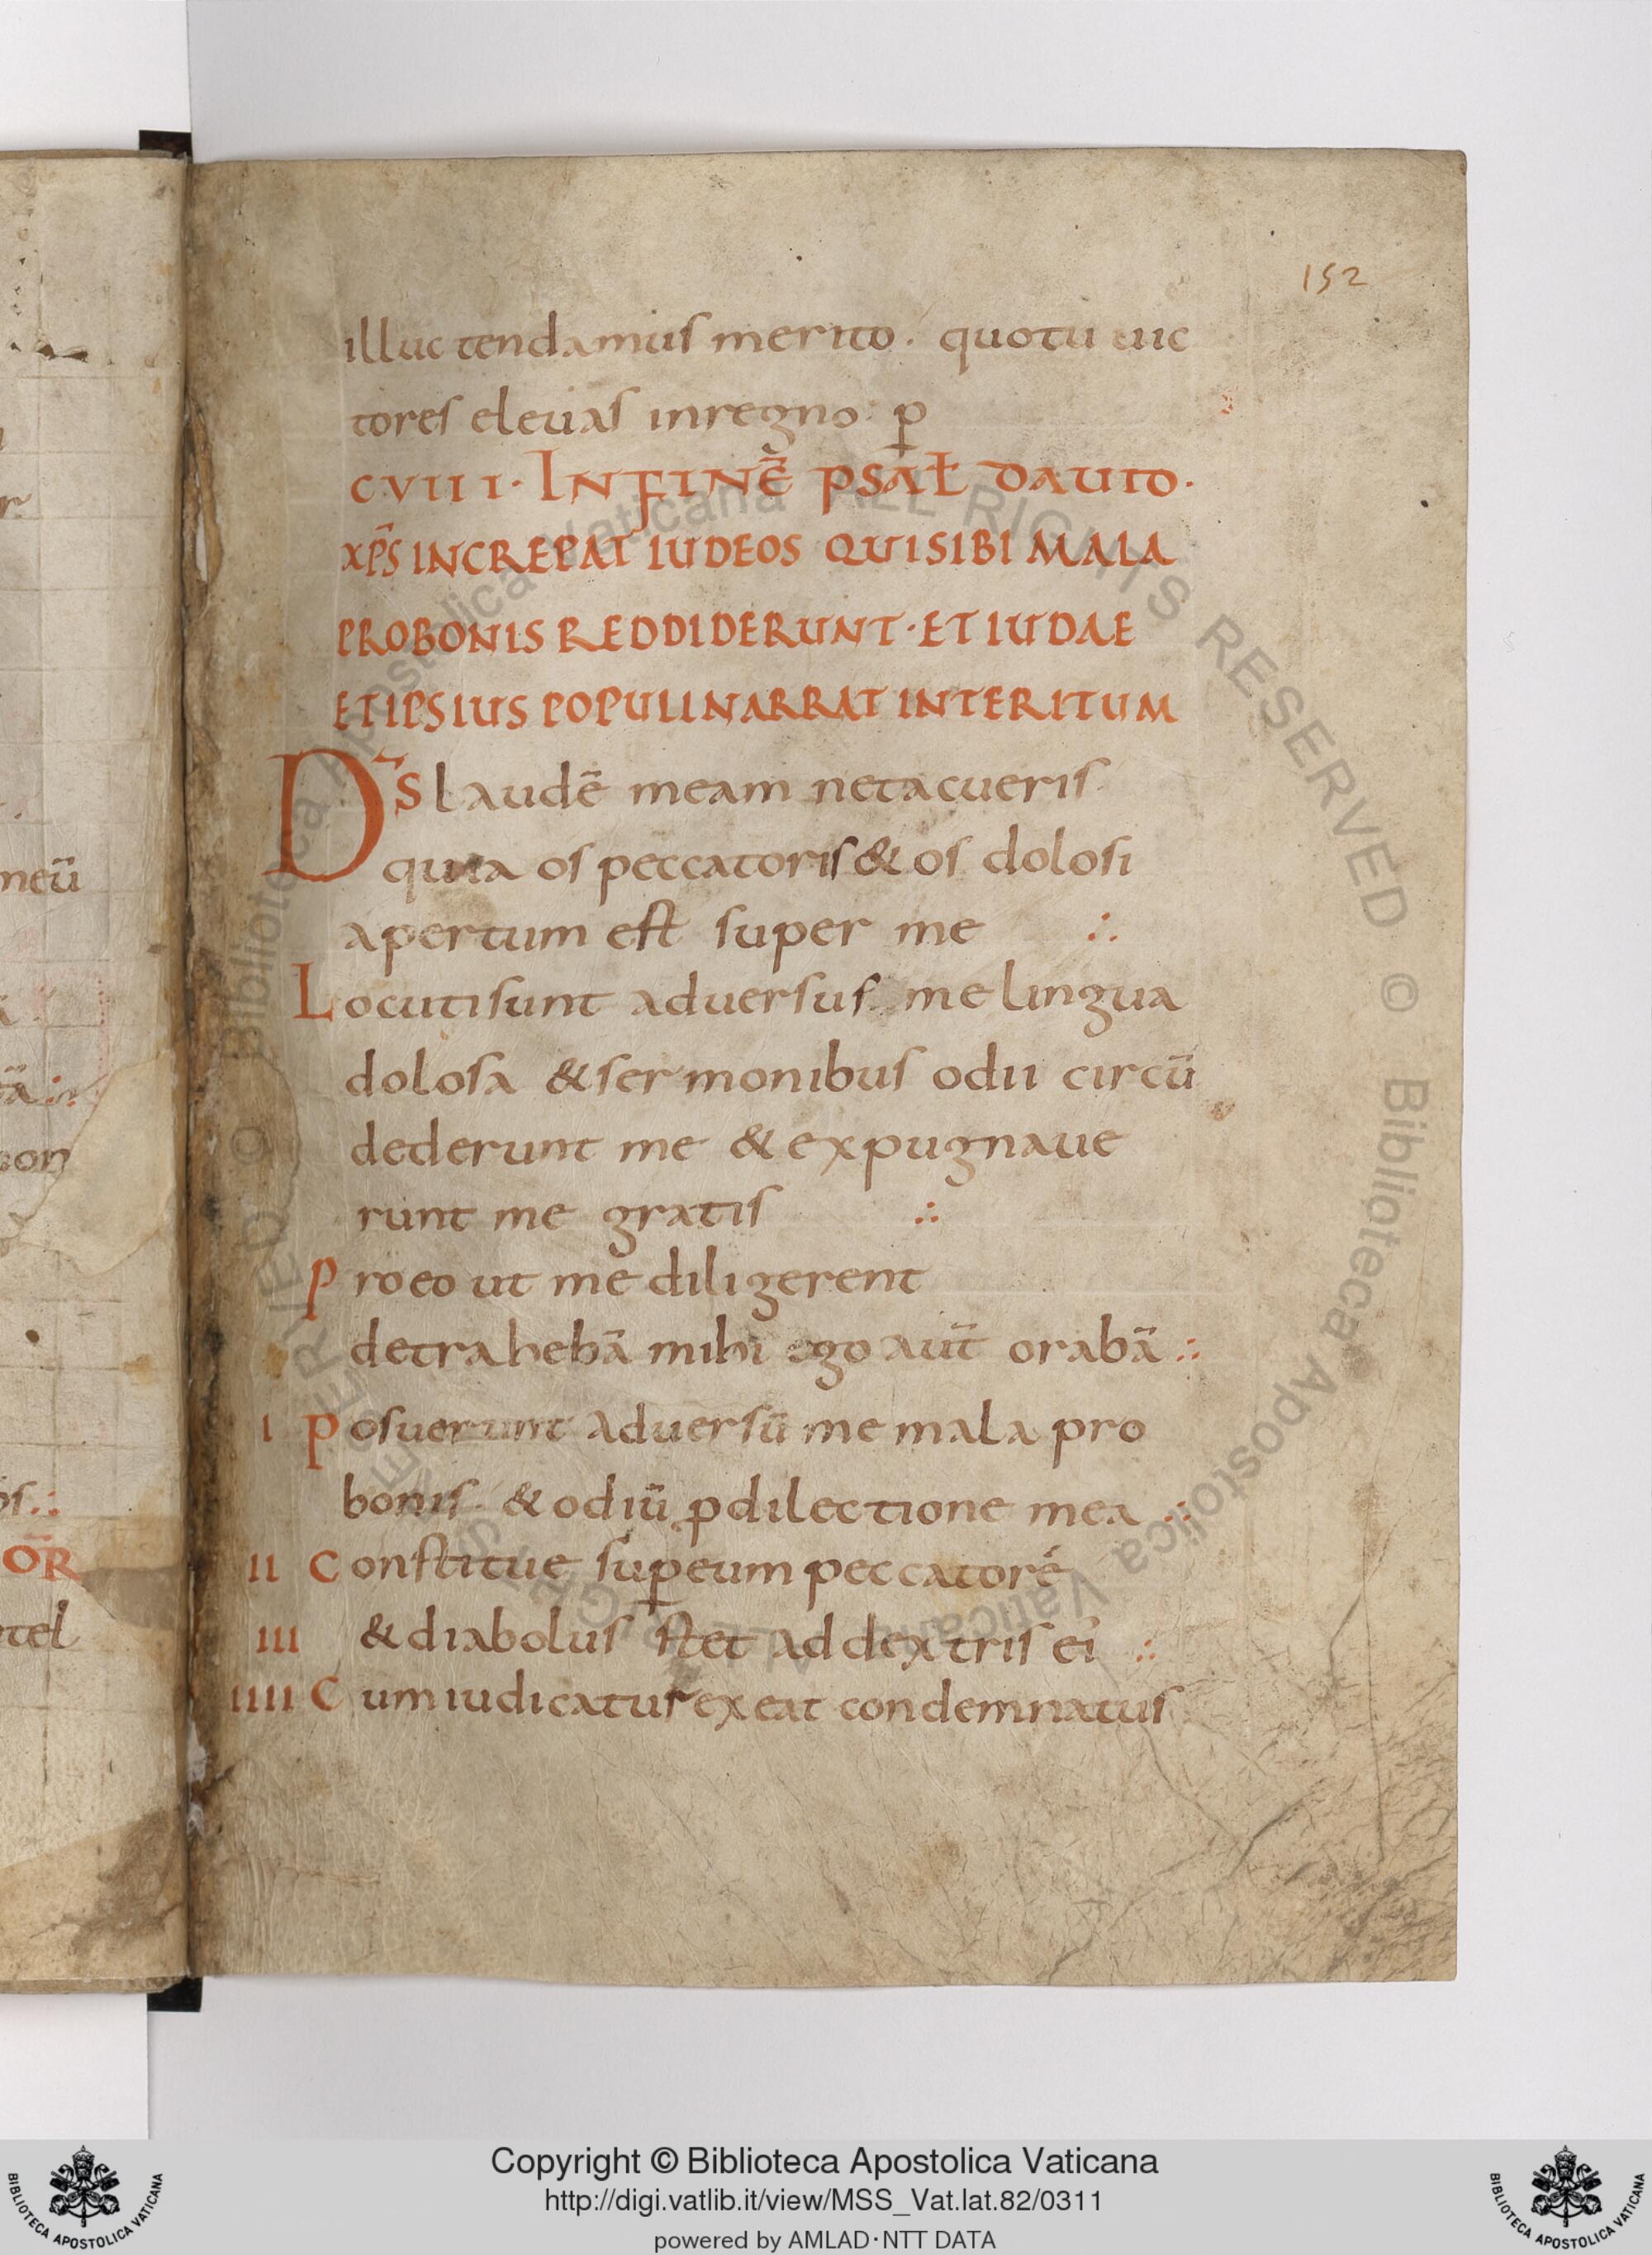 152
illuc tendamus merito. quo tu uic
tores eleuas in regno: p̱
CVIIII. IN FINĒ PSAŁ DAUID.
XP̄S INCREPAT IUDEOS QUI SIBI MALA
PRO BONIS REDDIDERUNT · ET IUDAE
ET IPSIUS POPULI NARRAT INTERITUM
D̄S laudē meam ne tacueris.
quia os peccatoris & os dolosi
apertum est super me ∴
Locuti sunt aduersus me lingua
dolosa & sermonibus odii circū
dederunt me & expugnaue
runt me gratis ∴
Pro eo ut me diligerent
detrahebā mihi ego aut̄ orabā ∴
I Posuerunt aduersū me mala pro
bonis & odiū p dilectione mea ∴
II Constitue sup̱ eum peccatorē
III & diabolus stet ad dextris ei ∴
IIII Cum iudicatur exeat condemnatus
neū
ā ∴
on
os ∴
OR̄
tel
Copyright © Biblioteca Apostolica Vaticana
http://digi.vatlib.it/view/MSS_Vat.lat.82/0311
powered by AMLAD·NTT DATA
BIBLIOTECA APOSTOLICA VATICANA
BIBLIOTECA APOSTOLICA VATICANA
© Biblioteca Apostolica Vaticana ALL RIGHTS RESERVED © Biblioteca Apostolica Vaticana ALL RIGHTS RESERVED